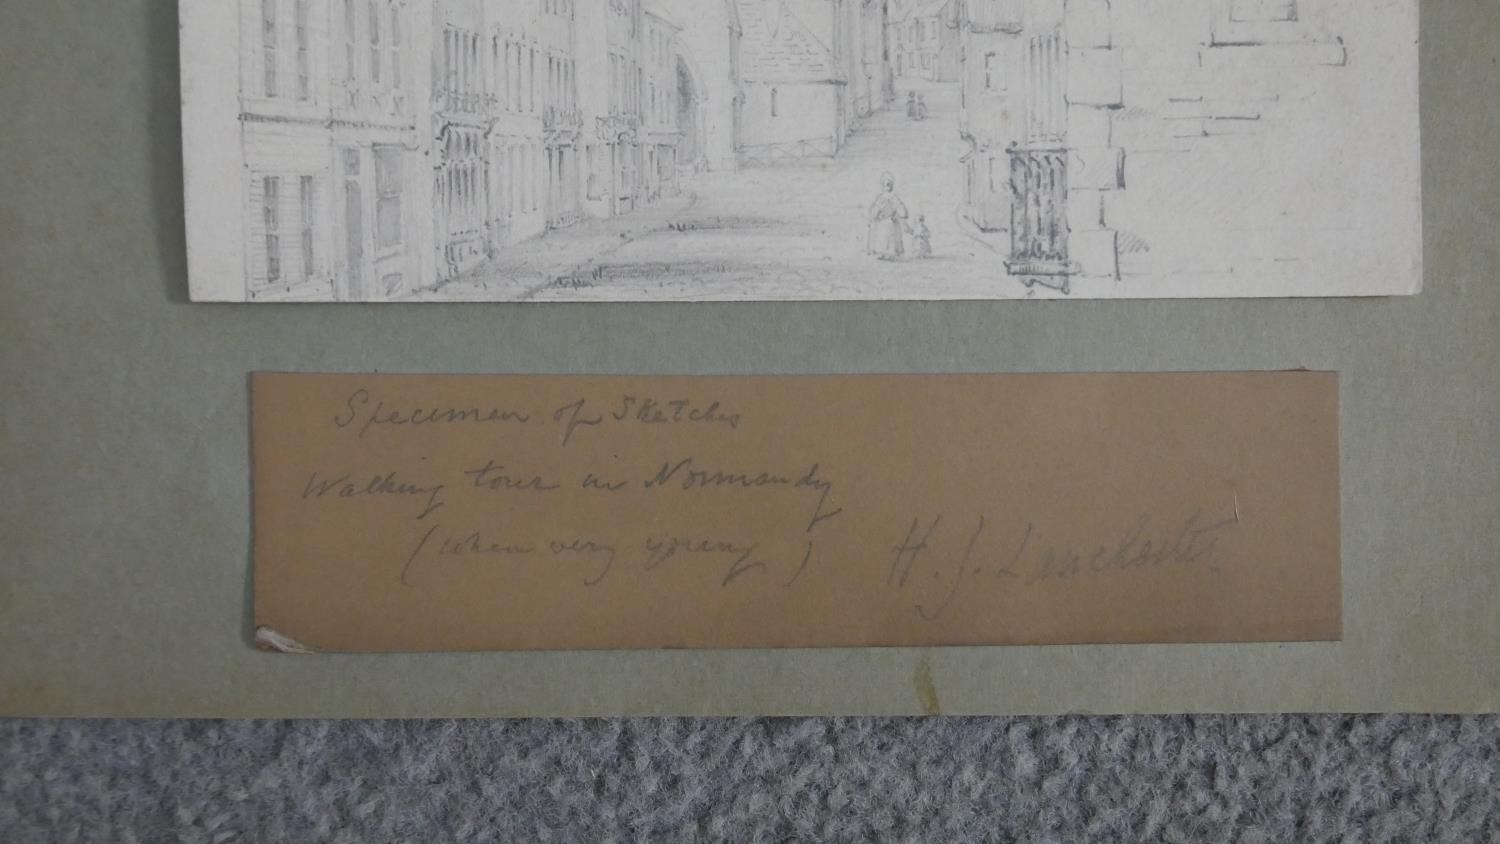 Specimen of Sketches
Walking tour in Normandy
(when very young)
H. J. Lanchester.